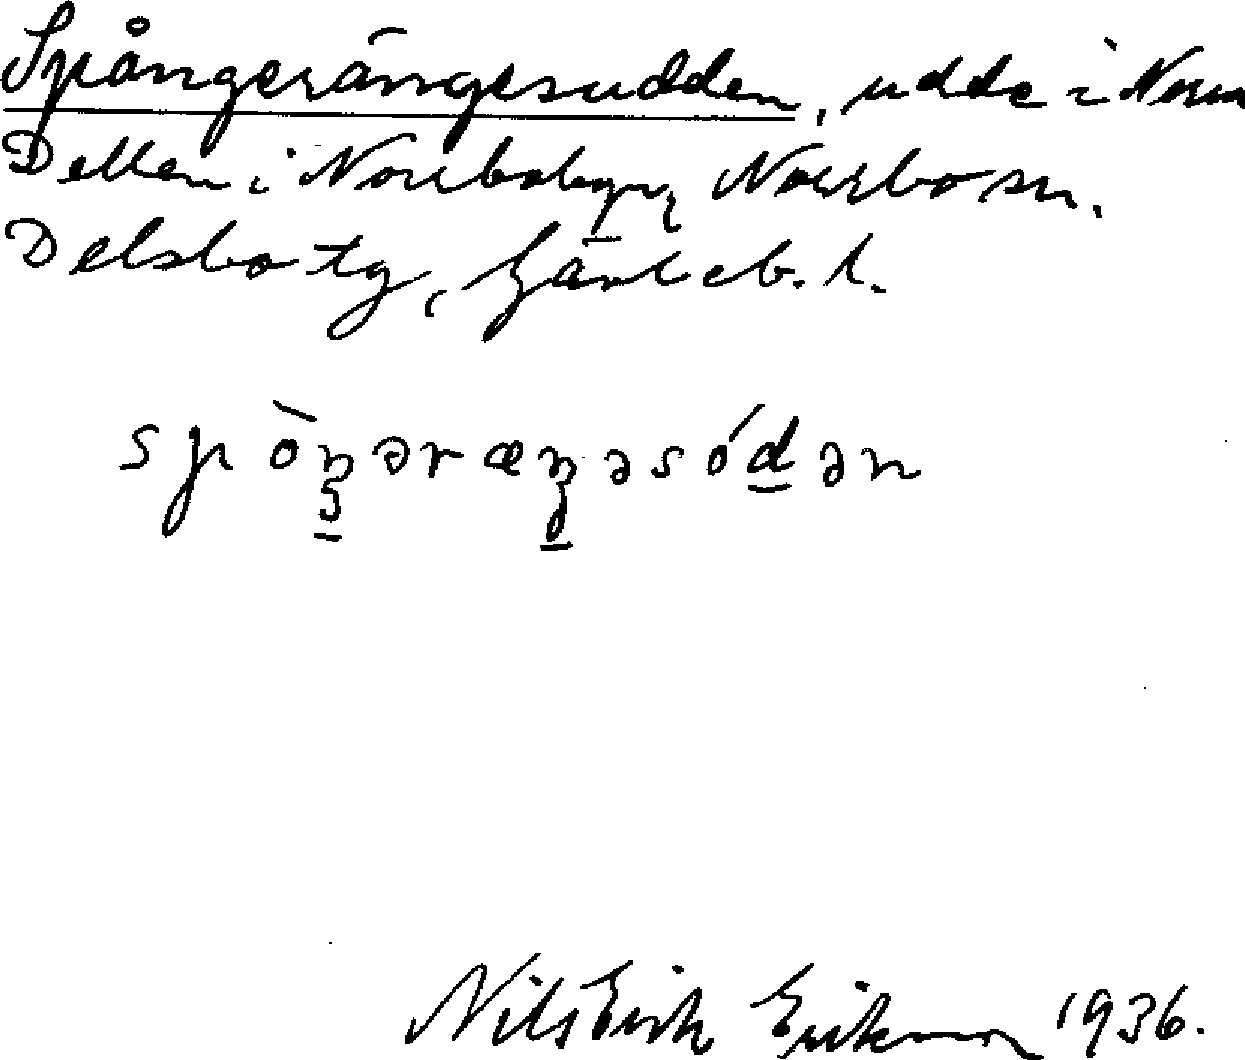 Spångerängesudden, udde i Norra
Dellen i Norrbobyn, Norrbo sn.
Delsbo tg, Gävleb. l.
spòŋəræŋəsódən
Nils Erik Erikson 1936.